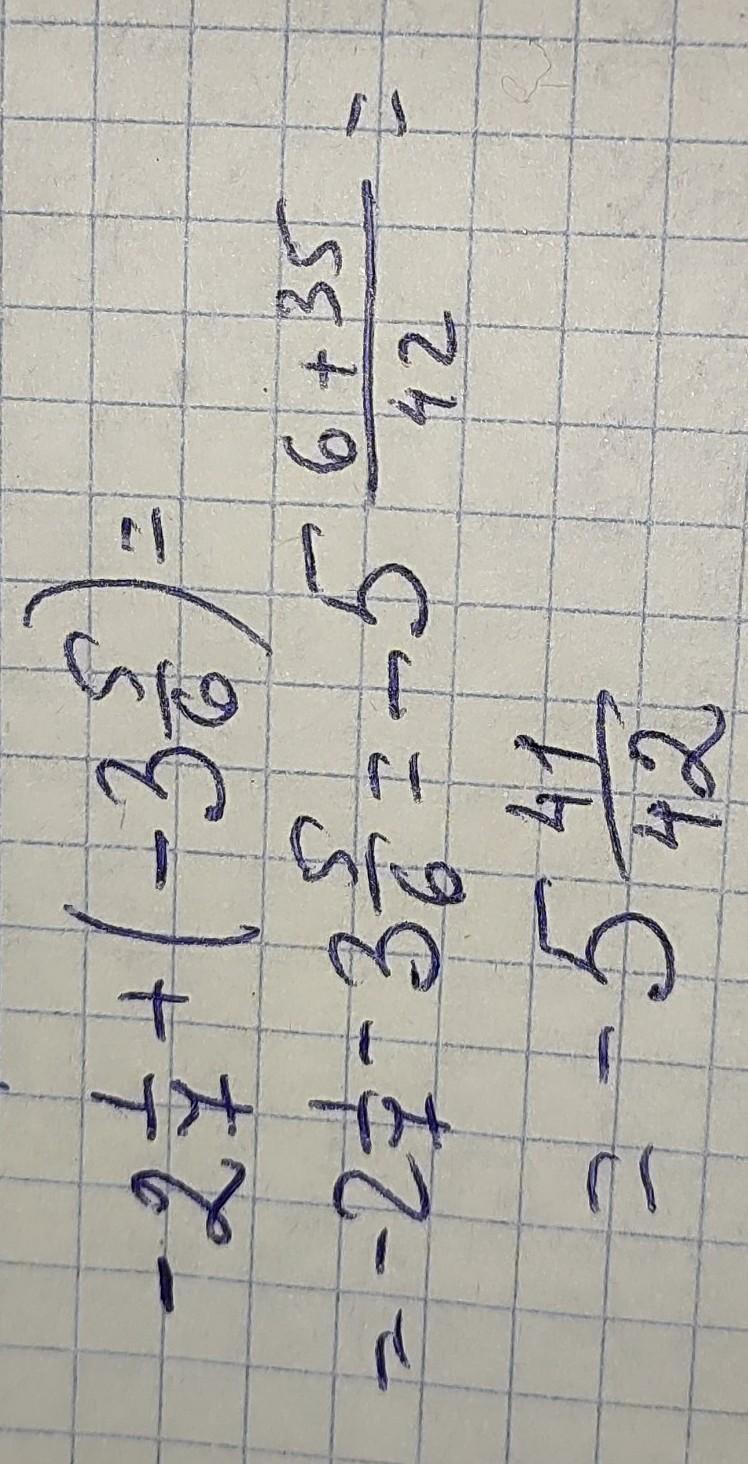 -2 1/7 + (-3 5/6) =
= -2 1/7 - 3 5/6 = -5 (6+35)/42 =
= -5 41/42